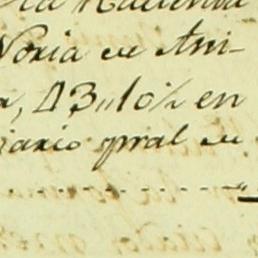 la Hacienda
Noria de Ani-
a, 13,,10% en
iario gral de